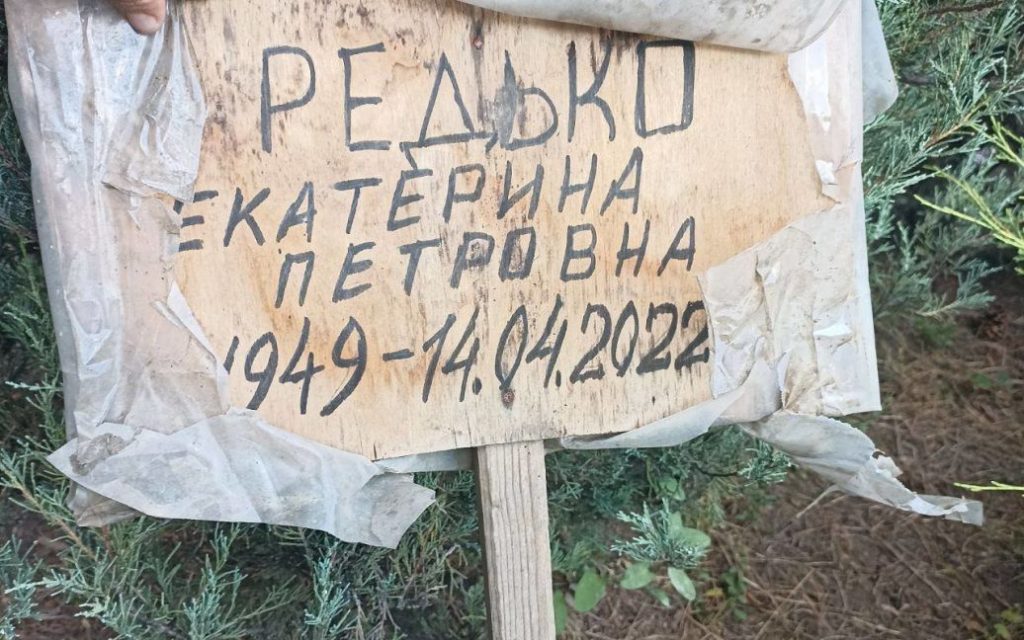 РЕДЬКО
ЕКАТЕРИНА
ПЕТРОВНА
1949-14.04.2022